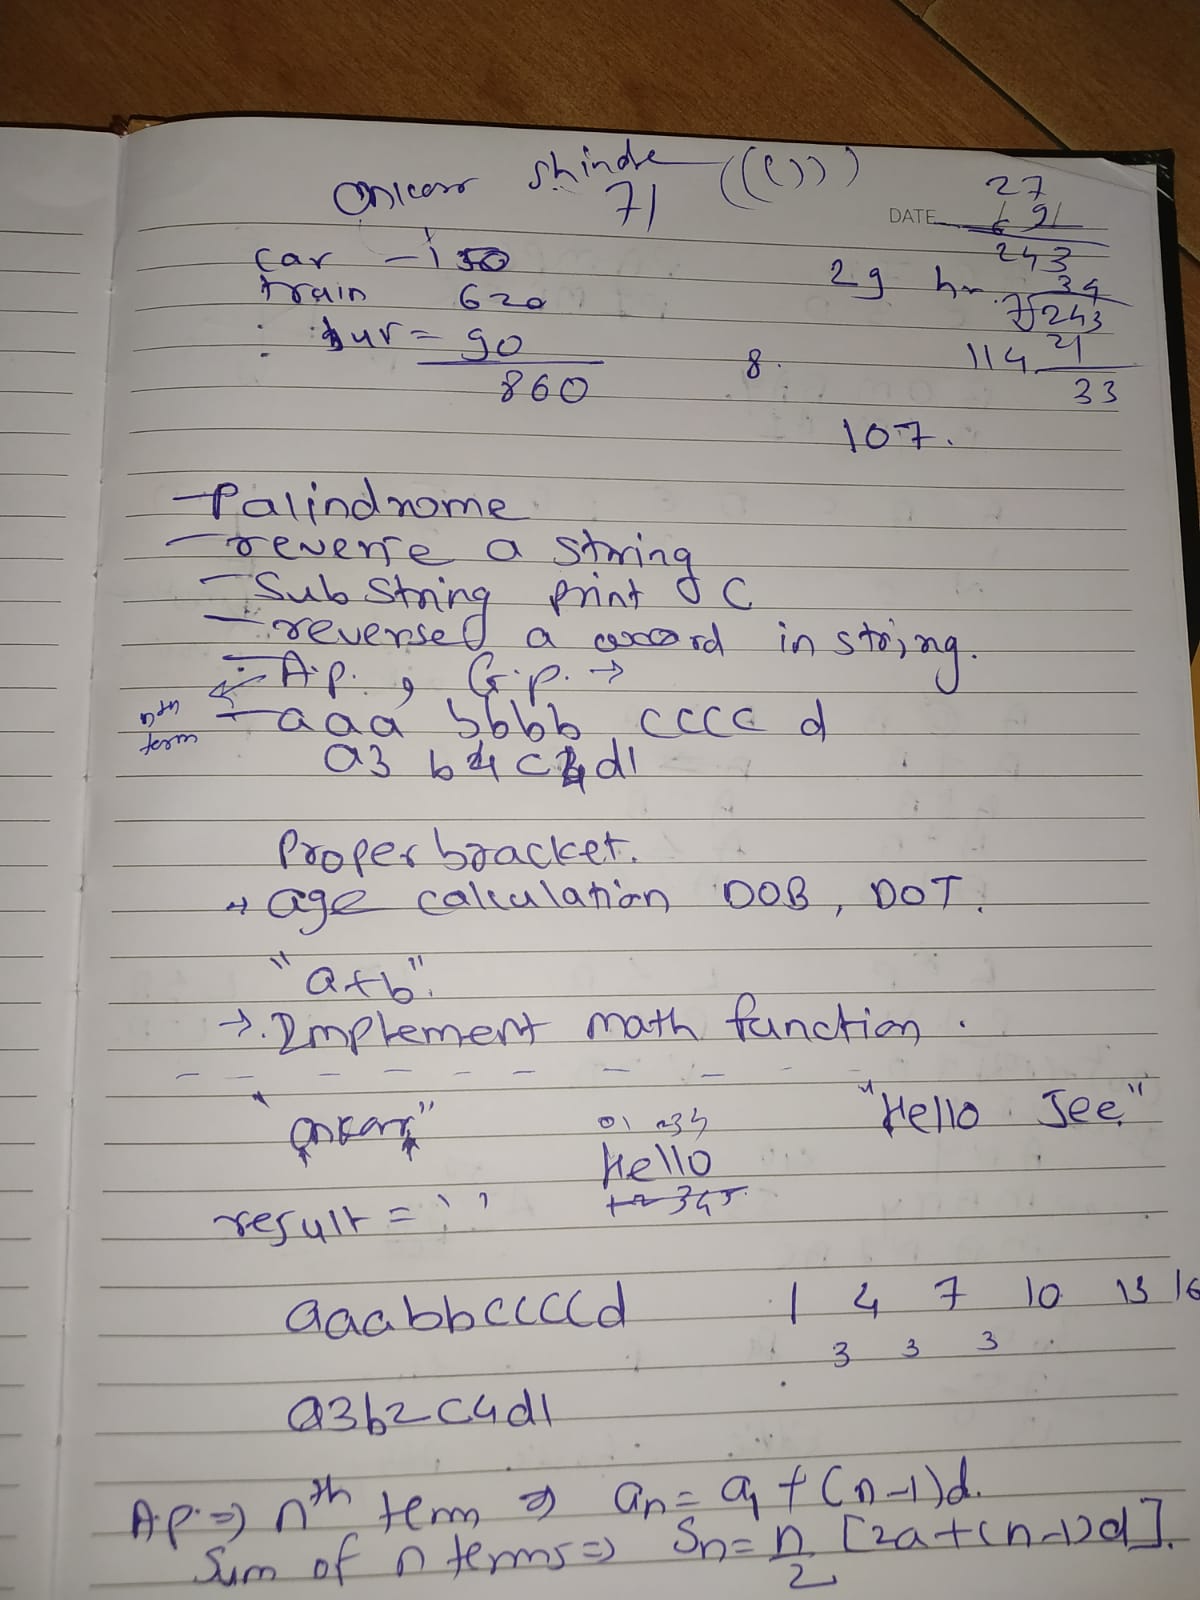 Onkar Shinde ((()))
71
DATE
27
91
243
car - 150
29 hr.
34
train 620
7)243
bur = 90
8.
114
21
860
33
107.
- Palindrome
- reverse a string
- Sub String print C
- reversed a word in string.
- A.p. , G.p. →
nth
term
- aaa bbbb cccc d
a3 b4 c4 d1
Proper bracket.
→ age calculation DOB, DOT.
"a+b".
→. Implement math function.
"onkar"
01 234
"Hello Jee"
Hello
result = ' '
345
aaabbccccd
1 4 7 10 13 16
3 3 3
a3b2c4d1
A.p. ⇒ nth term ⇒ an = a1 + (n-1)d.
Sum of n terms ⇒ Sn = n/2 [2a+(n-1)d].